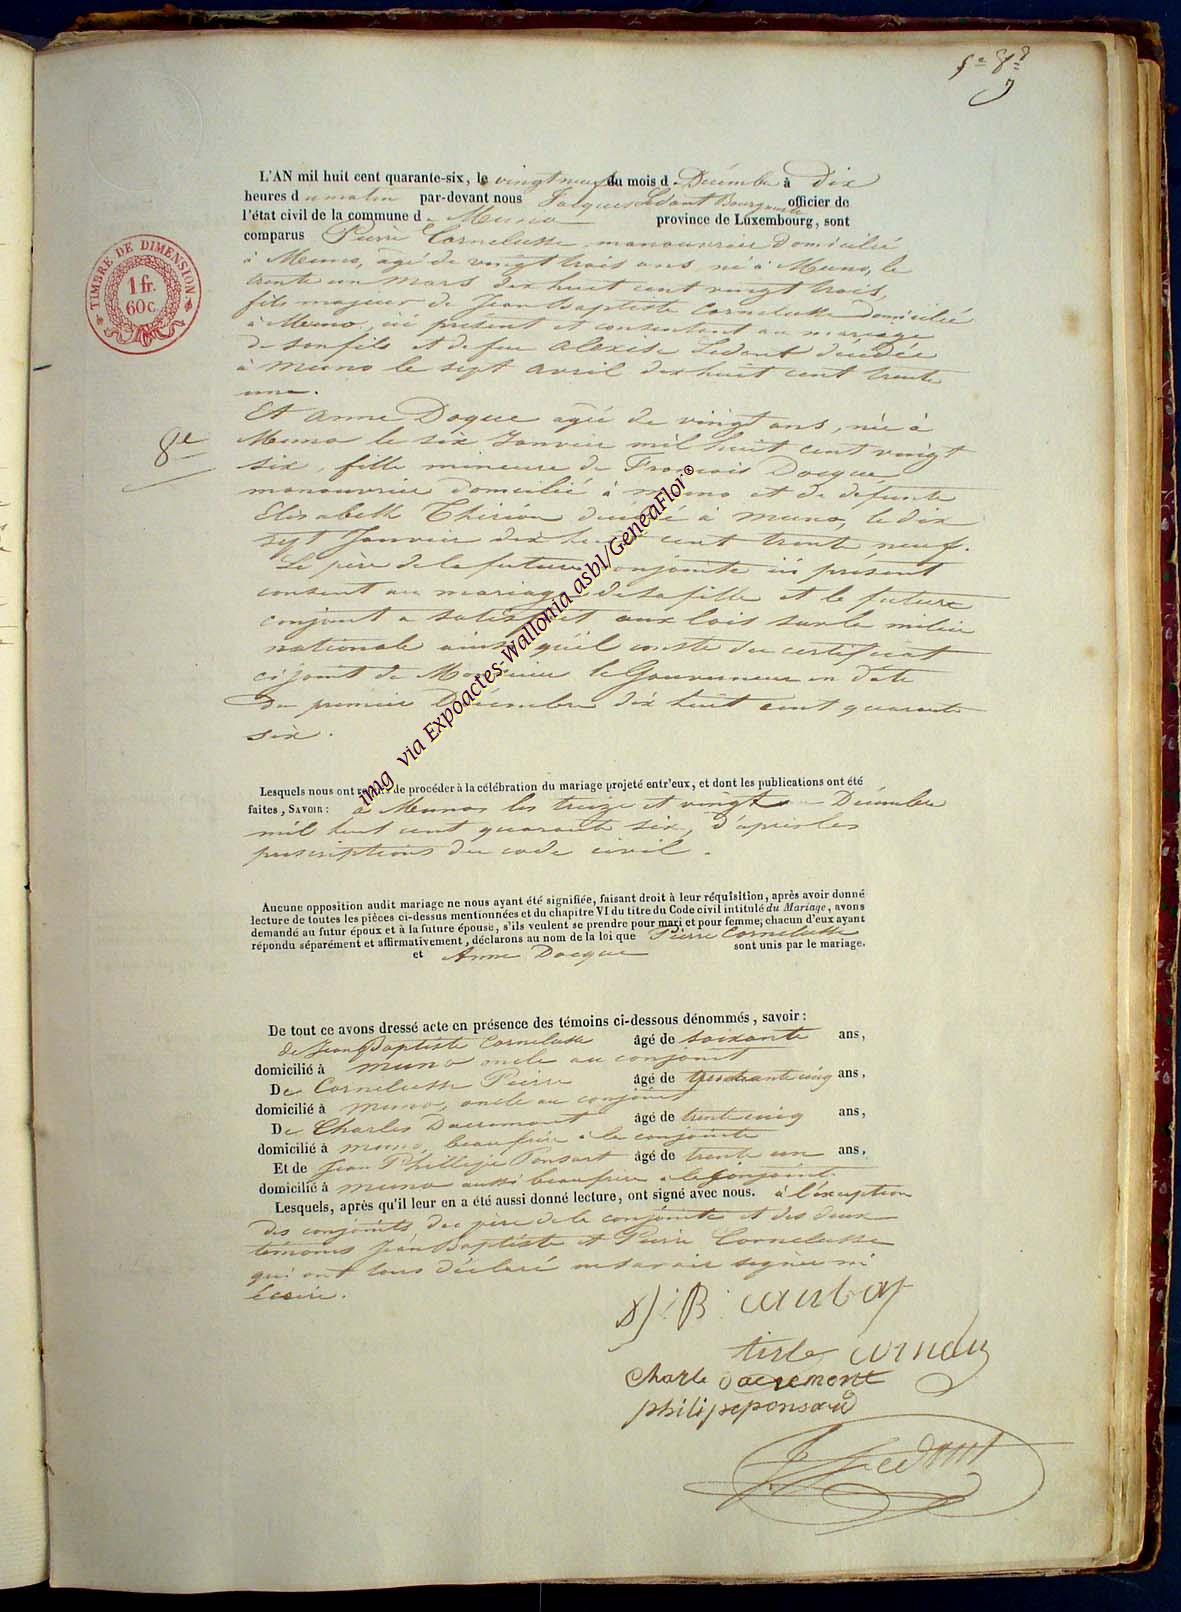 TIMBRE DE DIMENSION
1 fr.
60 c.
8e
L'AN mil huit cent quarante-six, le vingt neuf du mois d e Décembre à dix
heures d u matin par-devant nous Jacques Ledant Bourgmestre officier de
l'état civil de la commune d e Muno province de Luxembourg, sont
comparus Pierre Cornelusse, manouvrier domicilié
à Muno, agé de vingt trois ans, né à Muno, le
trente un mars dix huit cent vingt trois,
fils majeur de Jean Baptiste Cornelusse domicilié
à Muno, ici présent et consentant au mariage
de son fils et de feu Alexise Ledent décédée
à Muno le sept avril dix huit cent trente
une.
Et Anne Doque agée de vingt ans, née à
Muno le six Janvier mil huit cent vingt
six, fille mineure de François Docque
manouvrier domicilié à Muno et de defunte
Elisabeth Thirion décédé à Muno, le dix
sept Janvier dix huit cent trente neuf.
Le père de la future conjointe ici present
consent au mariage de sa fille et le future
conjoint a satisfait aux lois sur la milice
nationale ainsi qu'il conste du certificat
ci joint de Monsieur le Gouverneur en date
du premier Décembre dix huit cent quarante
six.
Lesquels nous ont requis de procéder à la célébration du mariage projeté entr'eux, et dont les publications ont été
faites, SAVOIR : à Muno les treize et vingt Décembre
mil huit cent quarante six, d'après les
prescriptions du code civil.
Aucune opposition audit mariage ne nous ayant été signifiée, faisant droit à leur réquisition, après avoir donné
lecture de toutes les pièces ci-dessus mentionnées et du chapitre VI du titre du Code civil intitulé du Mariage, avons
demandé au futur époux et à la future épouse, s'ils veulent se prendre pour mari et pour femme; chacun d'eux ayant
répondu séparément et affirmativement, déclarons au nom de la loi que Pierre Cornelusse
et Anne Docque sont unis par le mariage.
De tout ce avons dressé acte en présence des témoins ci-dessous dénommés, savoir :
de Jean Baptiste Cornelusse âgé de soixante ans,
domicilié à Muno oncle au conjoint
De Cornelusse Pierre âgé de cinq ans,
domicilié à Muno, oncle au conjoint
De Charles Dacremont âgé de trente cinq ans,
domicilié à Muno, beau frère à la conjointe
Et de Jean Phillipe Ponsart âgé de trente un ans,
domicilié à Muno aussi beau frère a la conjoint.
Lesquels, après qu'il leur en a été aussi donné lecture, ont signé avec nous. à l'exception
des conjoints du père de la conjointe et des deux
témoins Jean Baptiste et Pierre Cornelusse
qui ont tous déclaré ne savoir signer ni
écrire.
charle dacremont
J Ledant
img via Expoactes-Wallonia asbl/GeneaFlor®